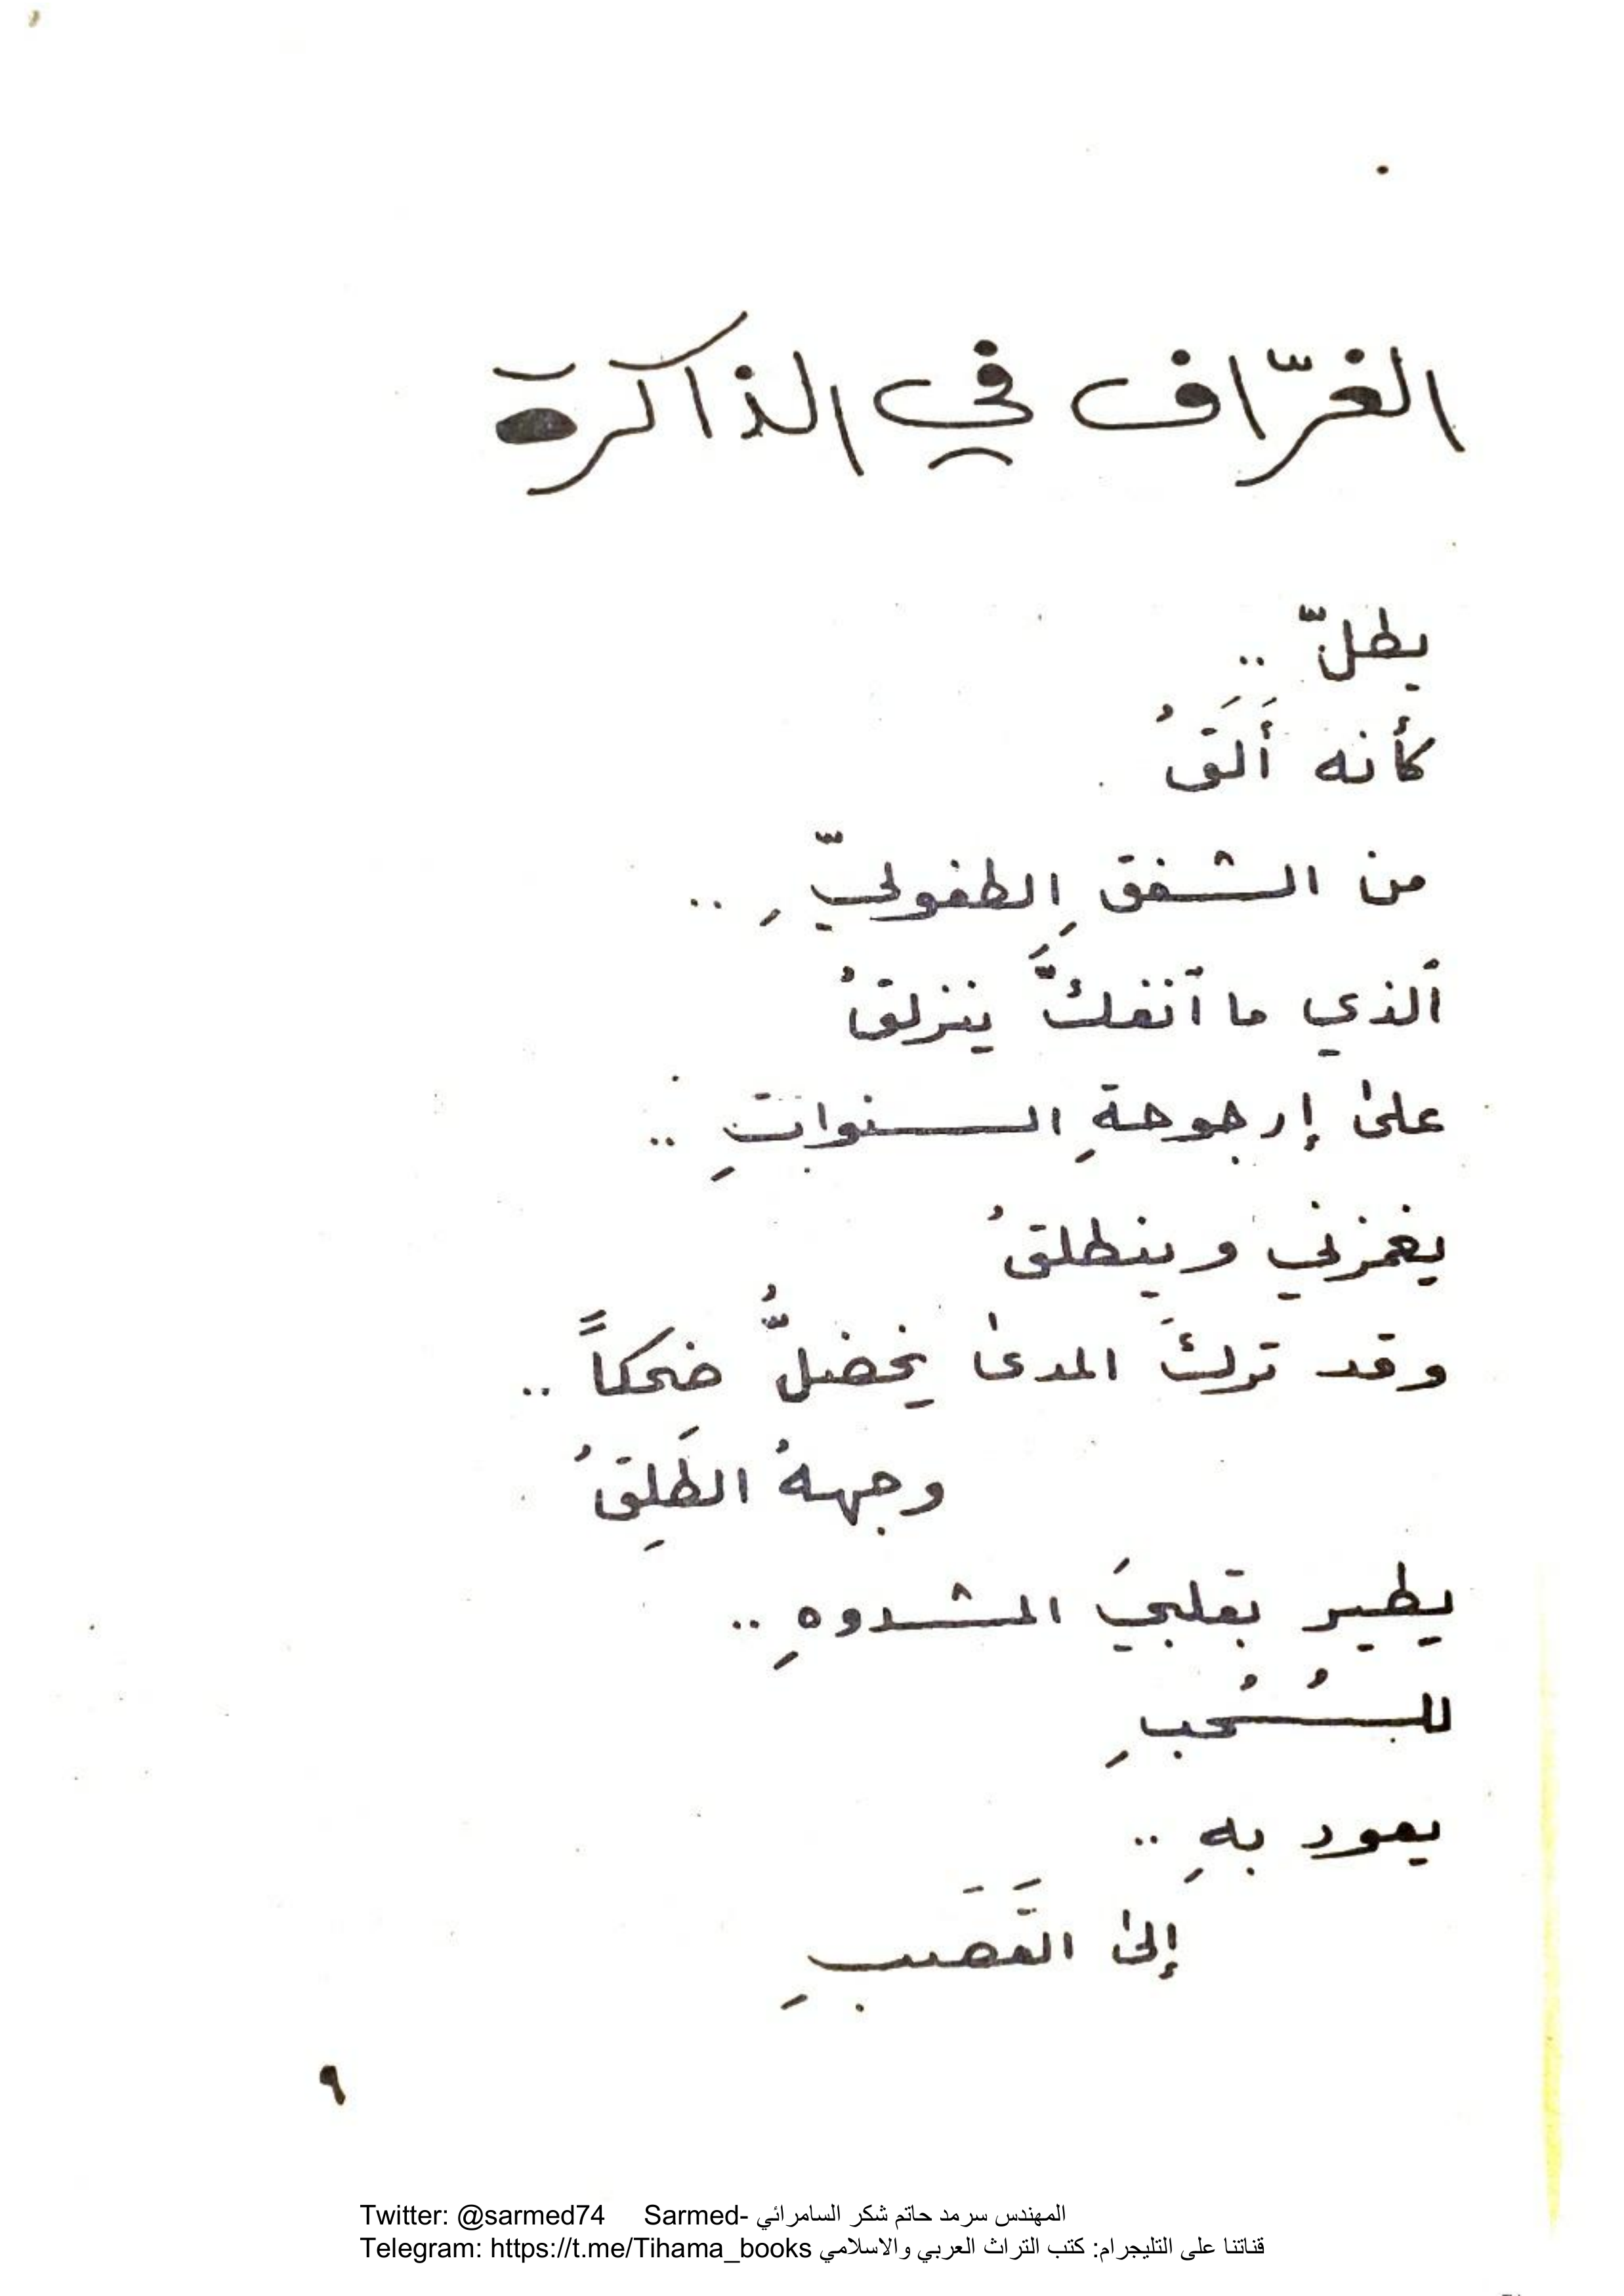 الغرّاف في الذاكرة
يطلّ ..
كأنه أَلَقُ
من الشفقِ الطفوليِّ ..
ٱلذي ما ٱنفكَّ ينزلقُ
على إرجوحةِ السنواتِ ..
يغمزني وينطلقُ
وقد تركَ المدى يخضلُّ ضحكاً ..
وجههُ الطَلِقُ
يطير بقلبيَ المشدوهِ ..
للسُحُبِ
يعود بهِ ..
إلى القَصَبِ
٩
Twitter: @sarmed74 Sarmed- المهندس سرمد حاتم شكر السامرائي
Telegram: https://t.me/Tihama_books قناتنا على التليجرام: كتب التراث العربي والاسلامي